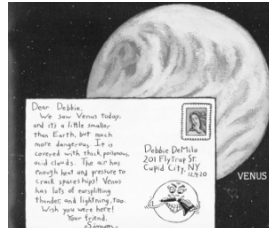 Dear Debbie,
We saw Venus today,
and it's a little smaller
than Earth, but much
more dangerous. It is
covered with thick poisonous,
acid clouds. The air has
enough heat and pressure to
crack spaceships! Venus
has lots of earsplitting
thunder and lightning, too.
Wish you were here!
Your friend,
Debbie DeMilo
201 FlyTrap St.
Cupid City, NY
VENUS